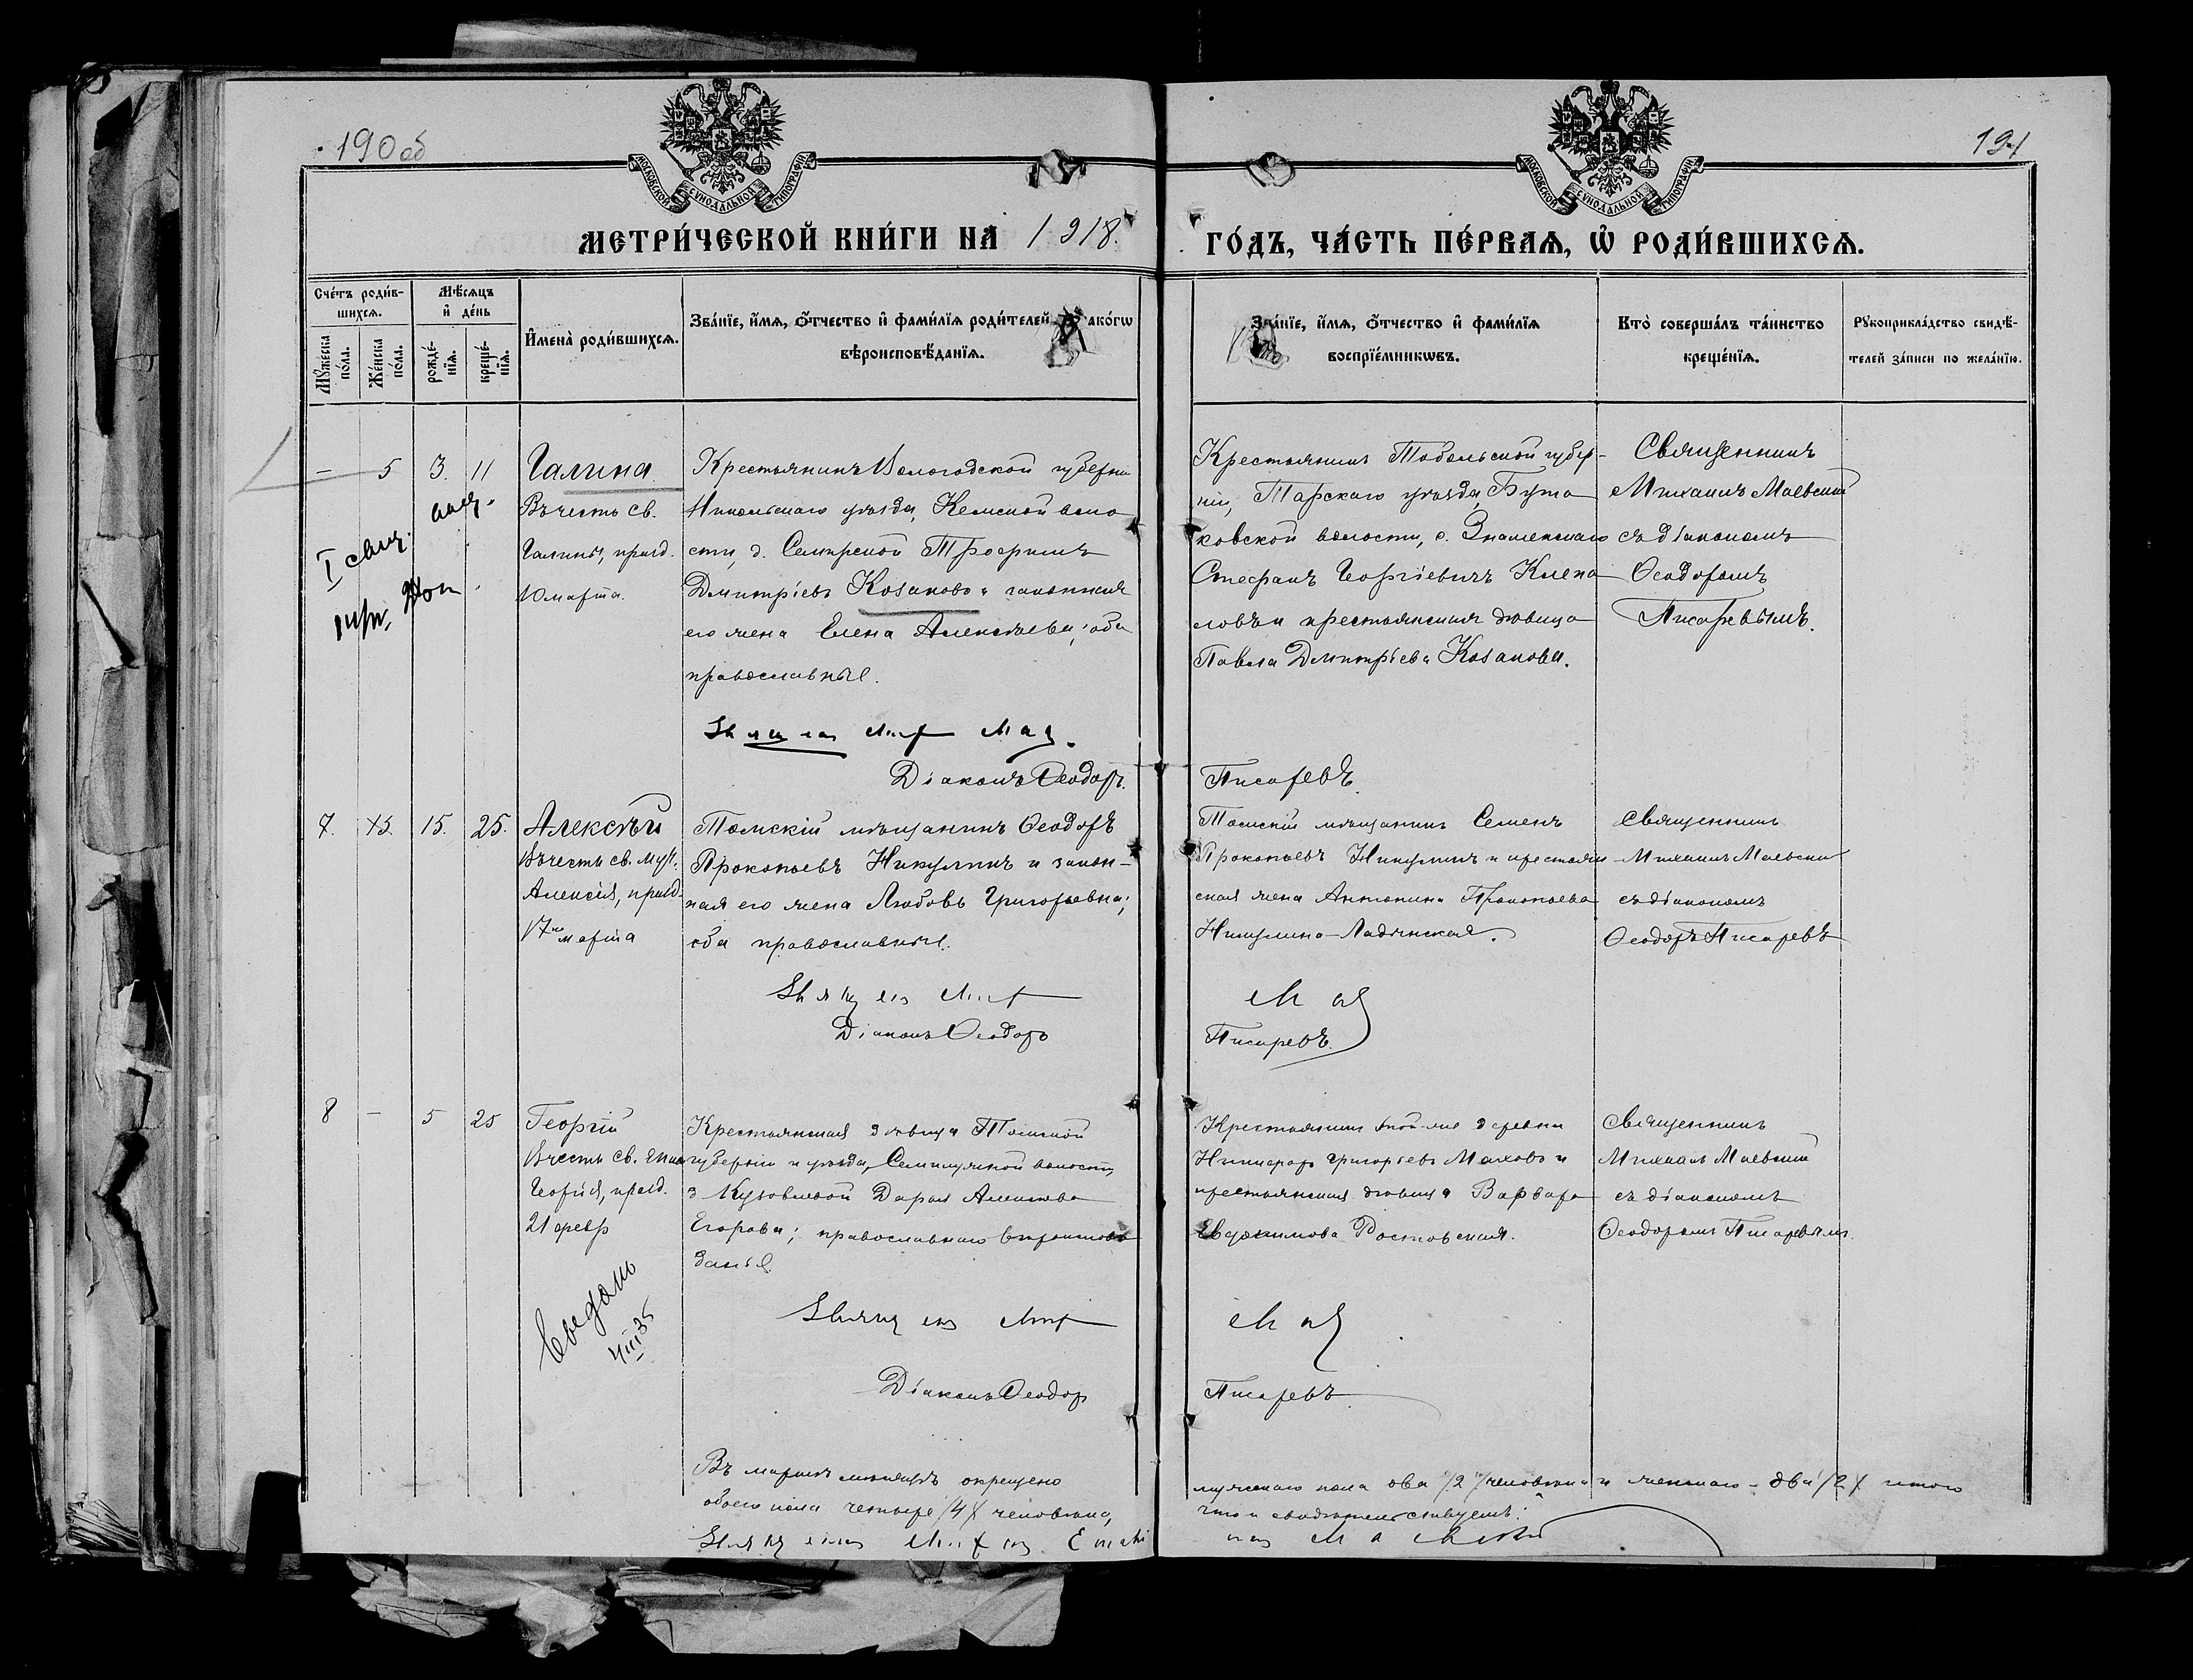 190 об
191
МОСКОВСКОЙ СУНОДАЛЬНОЙ ТИПОГРАФІИ
МОСКОВСКОЙ СУНОДАЛЬНОЙ ТИПОГРАФІИ
МЕТРИ́ЧЕСКОЙ КНИ́ГИ НА 1918.
ГО́ДЪ, ЧА́СТЬ ПЕ́РВАѦ, Ѡ҆ РОДИ́ВШИХСѦ.
Сче́тъ роди́в-
шихсѧ.
Мꙋ́жеска по́ла.
Же́нска по́ла.
Мѣ́сѧцъ
и҆ де́нь
рожде́-
нїѧ.
креще́-
нїѧ.
И҆мена̀ роди́вшихсѧ.
Зва́нїе, и҆́мѧ, ѻ҆́тчество и҆ фами́лїѧ роди́телей, ако́гѡ
вѣроисповѣ́данїѧ.
Зва́нїе, и҆́мѧ, ѻ҆́тчество и҆ фами́лїѧ
воспрїе́мникѡвъ.
Кто̀ соверша́лъ та́инство
креще́нїѧ.
Рꙋкоприкла́дство свидѣ́-
телей за́писи по жела́нїю.
– 5 3. 11
Галина
Въ честь св.
Галины, празд.
10 марта.
Крестьянинъ Вологодской губерніи
Никольскаго уѣзда, Кемской воло
сти, д. Трофимъ
Дмитріевъ Козаковъ и законная
его жена Елена Алексѣева; оба
православные.
Діаконъ Ѳеодоръ
Крестьянинъ Тобольской губер-
ніи, Тарскаго уѣзда, Бута
ковской волости, с. Знаменскаго
Стефанъ Георгіевичъ
и крестьянская дѣвица
Павла Дмитріева Козакова.
Писаревъ.
Священникъ
Михаилъ Маевскій
съ діакономъ
Ѳеодоромъ
Писаревымъ.
7. 15. 25.
Алексѣй
Въ честь св. муч.
Алексія, празд.
17го марта
Томскій мѣщанинъ Ѳеодоръ
Прокопьевъ Никулинъ и закон-
ная его жена Любовь Григорьевна;
оба православные.
Діаконъ Ѳеодоръ
Томскій мѣщанинъ Семенъ
Прокопьевъ Никулинъ и крестьян
ская жена Антонина Прокопьева
Никулина-Ладинская.
Писаревъ.
Священникъ
Михаилъ Маевскій
съ діакономъ
Ѳеодоръ Писаревъ
8 – 5 25
Георгій
Въ честь св.
Георгія, празд.
21 февр
Выдано
4 III 35
Крестьянская дѣвица Томской
губерніи и уѣзда, Семилужной волости,
д. Кузовлевой Дарья Алексѣева
Егорова; православнаго вѣроиспов
данія
Діаконъ Ѳеодоръ
Крестьянинъ той-же деревни
Никифоръ Григорьевъ Маховъ и
крестьянская дѣвица Варвара
Евдокимова Ростовская.
Писаревъ
Священникъ
Михаилъ Маевскій
съ діакономъ
Ѳеодоромъ Писаревымъ.
Въ мартѣ мѣсяцѣ окрещено
мужескаго пола два /2/ человѣка и женскаго - два /2/ итого
обоего пола четыре /4/ человѣка,
что и свидѣтельствуемъ: